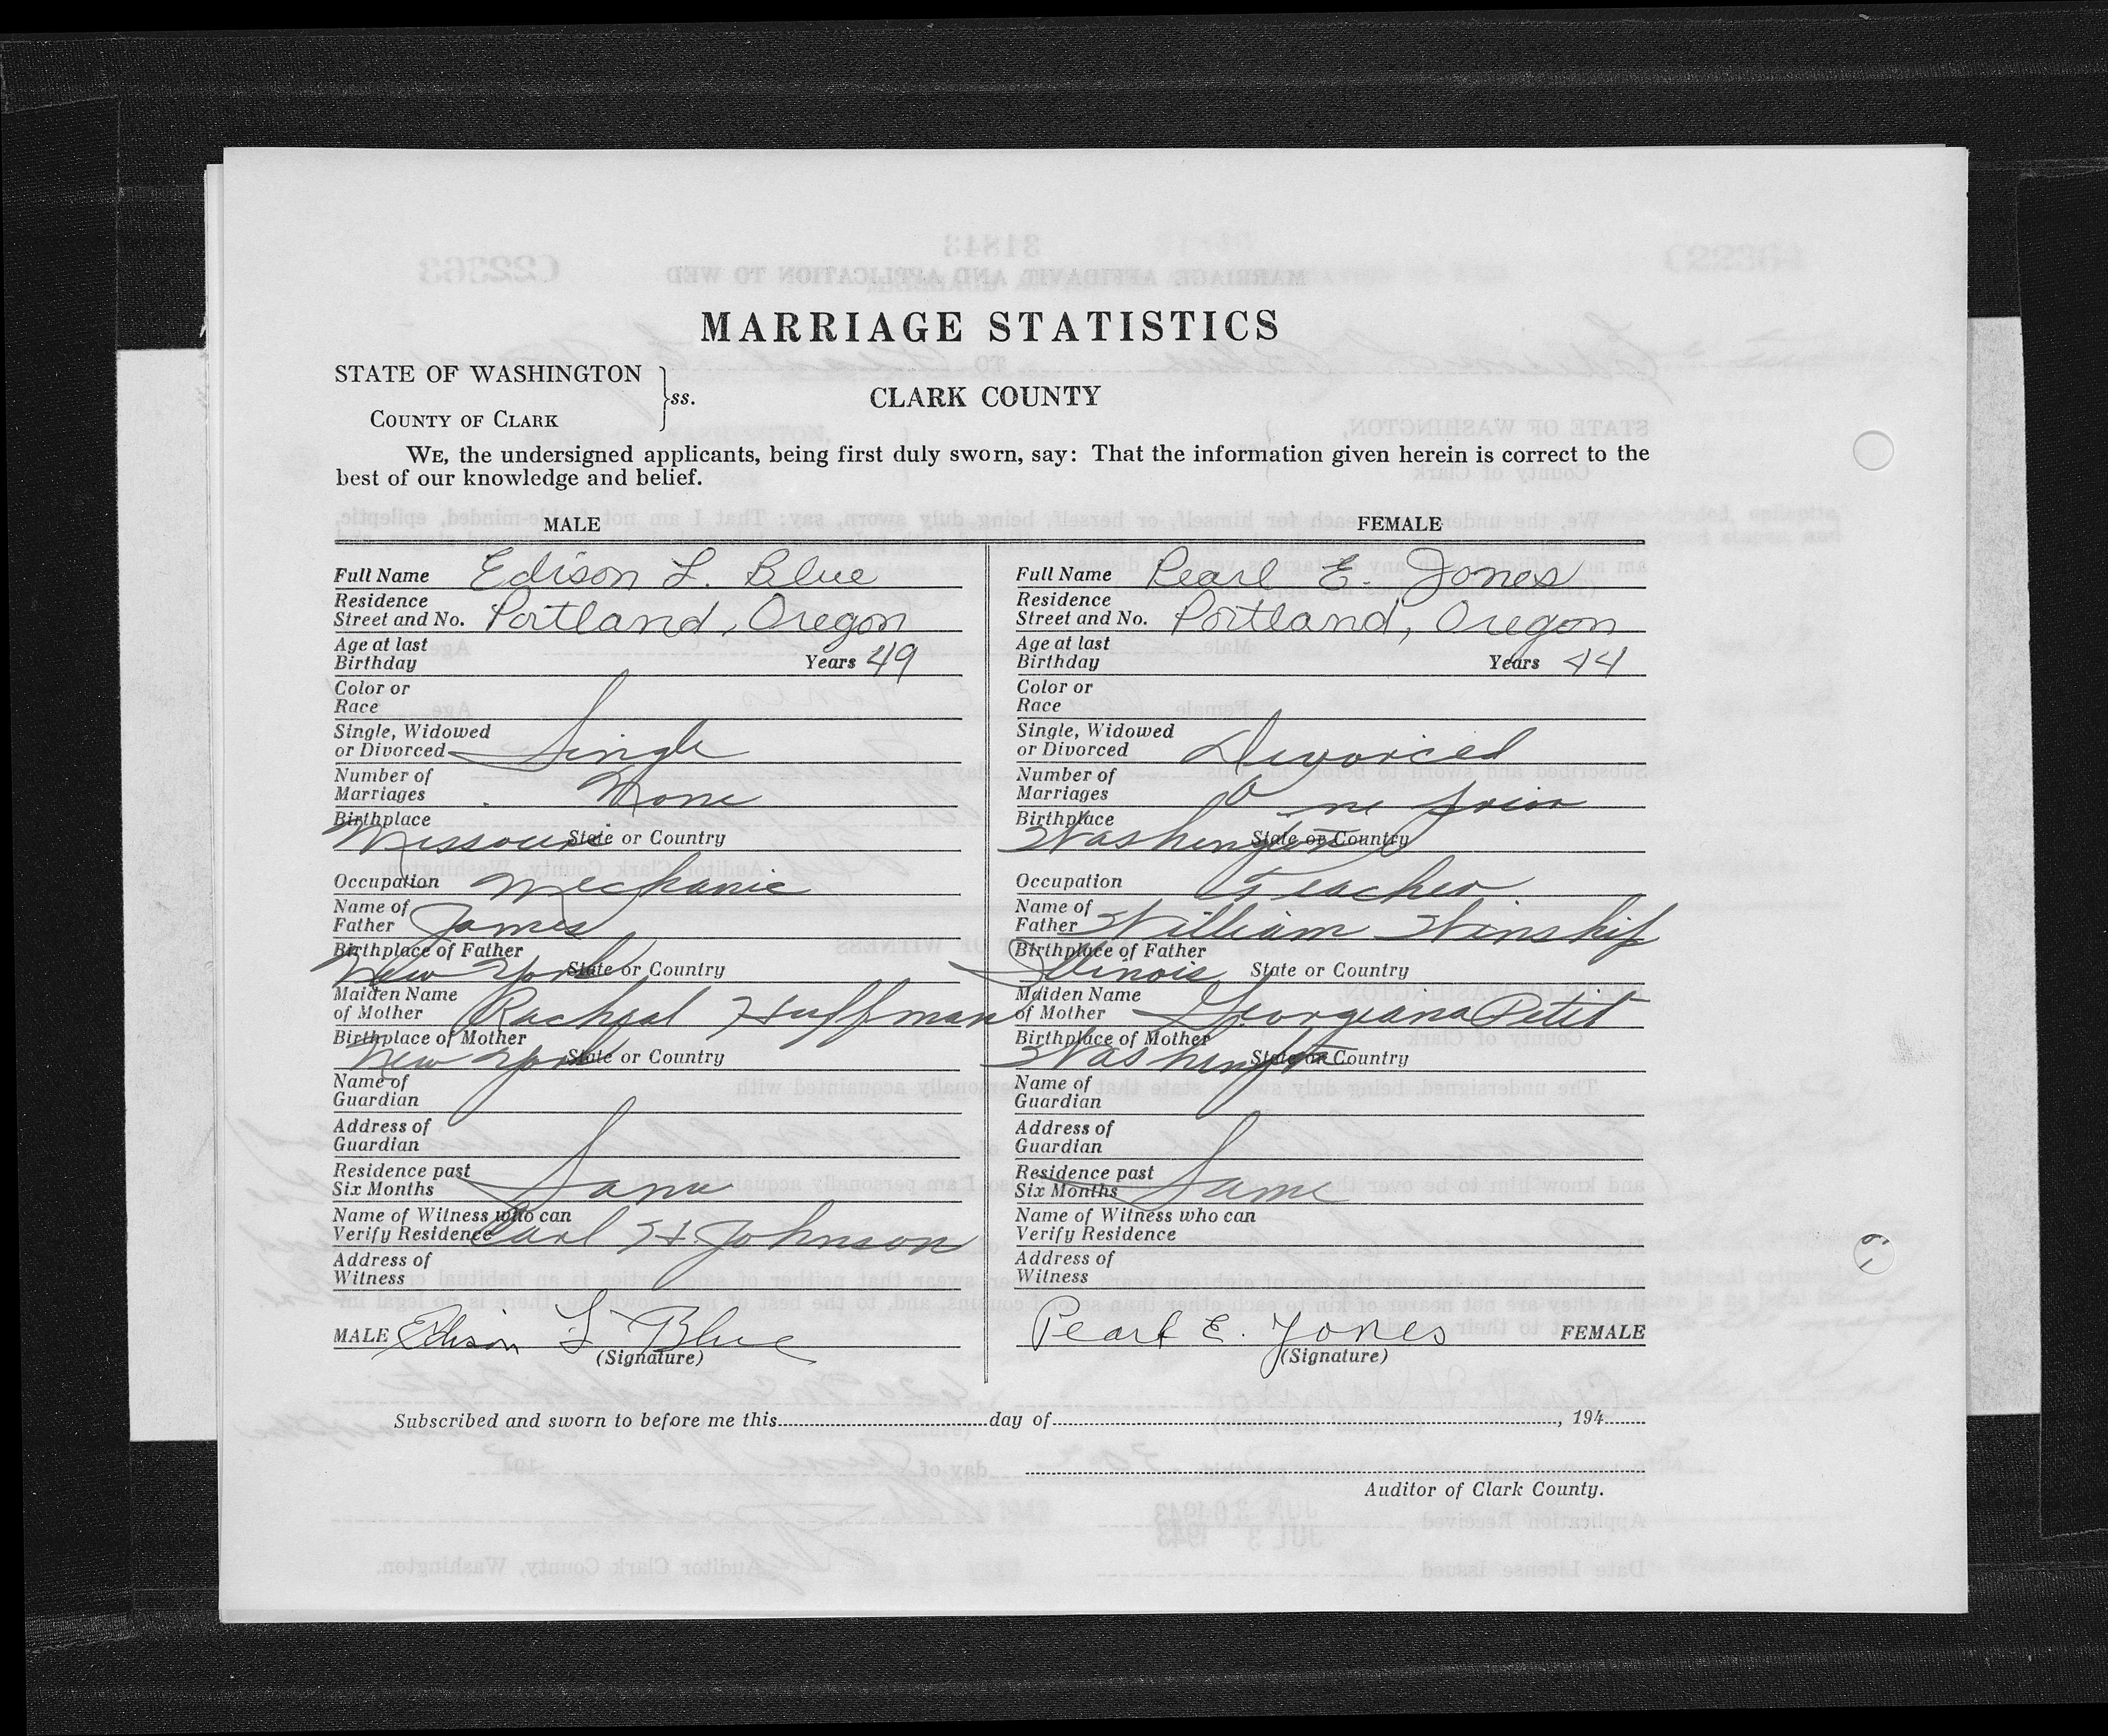 MARRIAGE STATISTICS
STATE OF WASHINGTON
ss.
CLARK COUNTY
COUNTY OF CLARK
WE, the undersigned applicants, being first duly sworn, say: That the information given herein is correct to the
best of our knowledge and belief.
MALE
Full Name Edison L. Blue
Residence
Street and No. Portland, Oregon
Age at last
Birthday Years 49
Color or
Race
Single, Widowed
or Divorced Single
Number of
Marriages None
Birthplace
Missouri State or Country
Occupation Mechanic
Name of
Father James
Birthplace of Father
New York State or Country
Maiden Name
of Mother Racheal Huffman
Birthplace of Mother
New York State or Country
Name of
Guardian
Address of
Guardian
Residence past
Six Months Same
Name of Witness who can
Verify Residence Carl H Johnson
Address of
Witness
MALE Edison L Blue
(Signature)
FEMALE
Full Name Pearl E. Jones
Residence
Street and No. Portland, Oregon
Age at last
Birthday Years 44
Color or
Race
Single, Widowed
or Divorced Divorced
Number of
Marriages One prior
Birthplace
Washington State or Country
Occupation Teacher
Name of
Father William Winship
Birthplace of Father
Illinois State or Country
Maiden Name
of Mother Georgiana Petit
Birthplace of Mother
Washington State or Country
Name of
Guardian
Address of
Guardian
Residence past
Six Months Same
Name of Witness who can
Verify Residence
Address of
Witness
Pearl E. Jones FEMALE
(Signature)
Subscribed and sworn to before me this day of , 194
Auditor of Clark County.